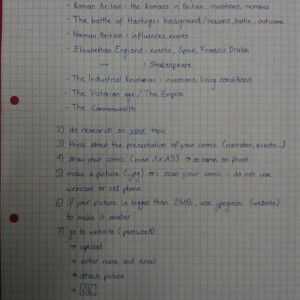 - Roman Britain: the Romans in Britain, inventions, remains
- The battle of Hastings: background/reasons, battle, outcome
- Norman Britain: influences, events
- Elizabethan England: events, Spain, Francis Drake
→ : Shakespeare
- The Industrial Revolution: inventions, living conditions
- The Victorian age / The Empire
- The Commonwealth
2) do research on your topic
3) think about the presentation of your comic (narrator, events...)
4) draw your comic (max 1x A3) → no name on front
5) make a picture (.jpg) or scan your comic - do not use
webcam or cell phone
6) if your picture is bigger than 2MB, use jpegmini (website)
to make it smaller
7) go to website (password)
→ upload
→ enter name and email
→ attach picture
→ OK